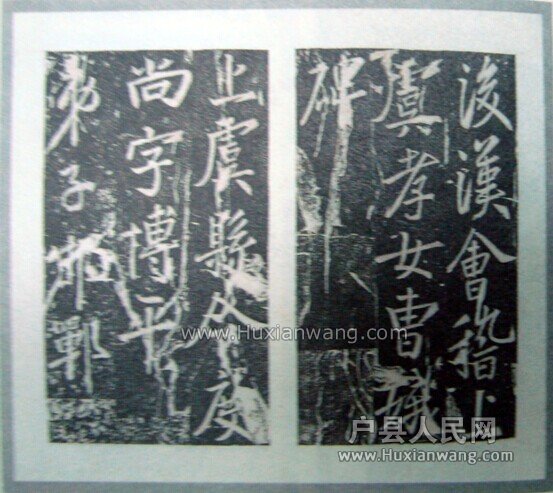 後漢會稽上
虞孝女曹娥
碑
上虞縣令度
尚字博平
弟子邯鄲
www.Huxianwang.com
户县人民网
www.Huxianwang.com